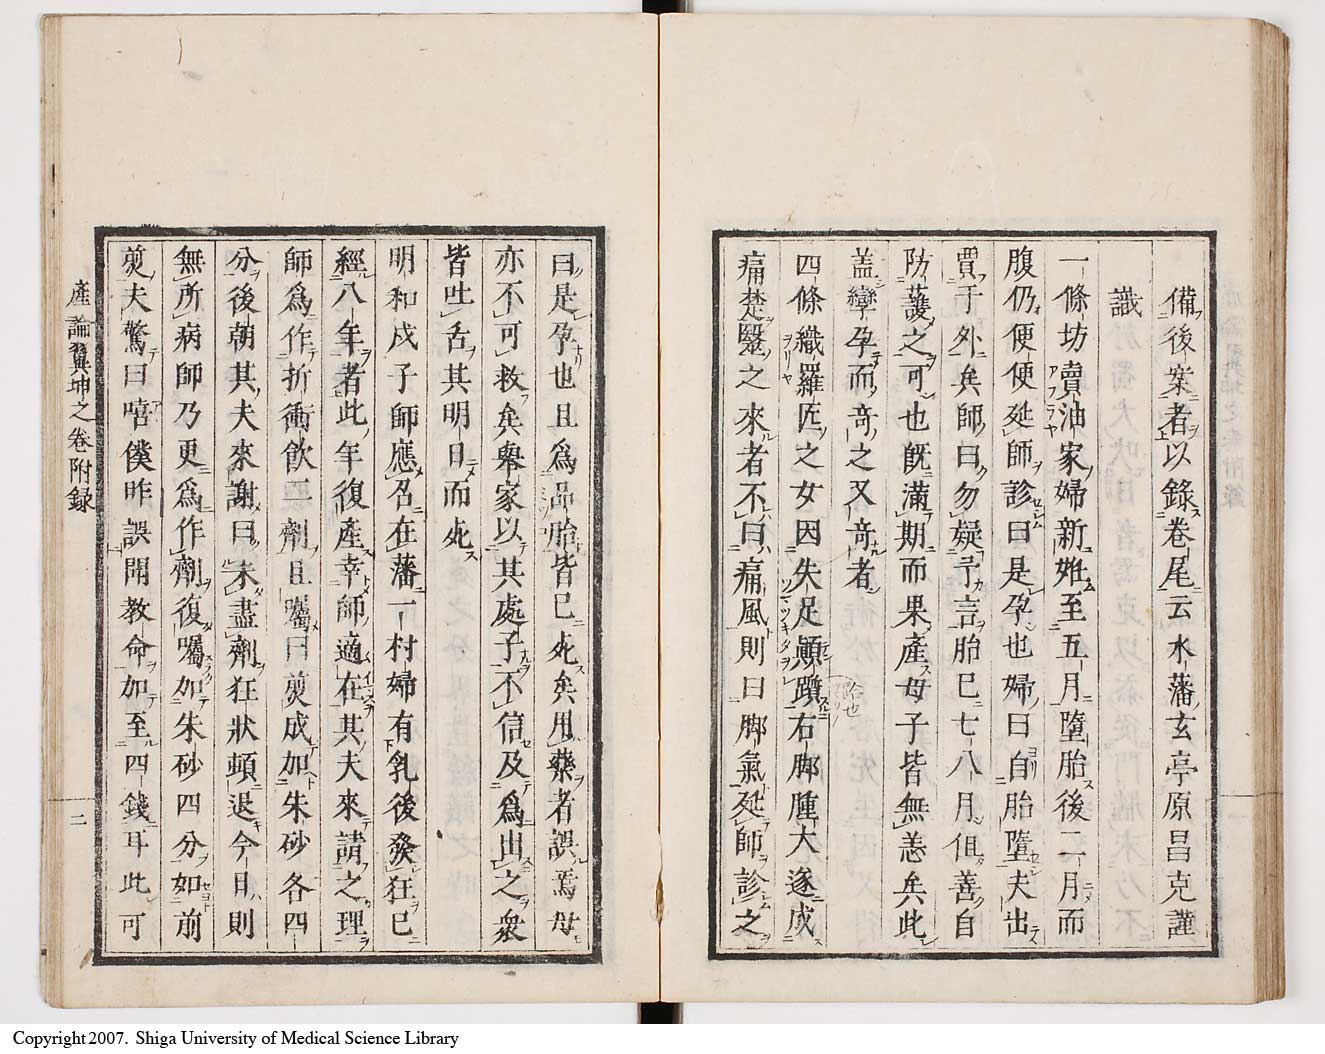 備後案者以錄卷尾云水藩玄亭原昌克謹
識
一條坊賣油家婦新娩至五月墮胎後二月而
腹仍便便延師診曰是孕也婦曰自胎墮夫出
賈于外矣師曰勿疑予言胎已七八月但善自
防護之可也既滿期而果產母子皆無恙矣此
蓋孿孕而奇之又奇者
四條織羅匠之女因失足顚躓右脚腫大遂成
痛楚醫之來者不曰痛風則曰脚氣延師診之
曰是孕也且爲品胎皆已死矣用藥者誤焉母
亦不可救矣舉家以其處子不信及爲出之衆
皆吐舌其明日而死
明和戍子師應召在藩一村婦有乳後發狂已
經八年者此年復產幸師適在其夫來請之理
師爲作折衝飮二劑且囑曰煎成加朱砂各四
分後朝其夫來謝曰未盡劑狂狀頓退今日則
無所病師乃更爲作劑復囑加朱砂四分如前
煎夫驚曰嘻僕昨誤聞教命加至四錢耳此可
產論翼坤之卷附録
二
Copyright 2007. Shiga University of Medical Science Library